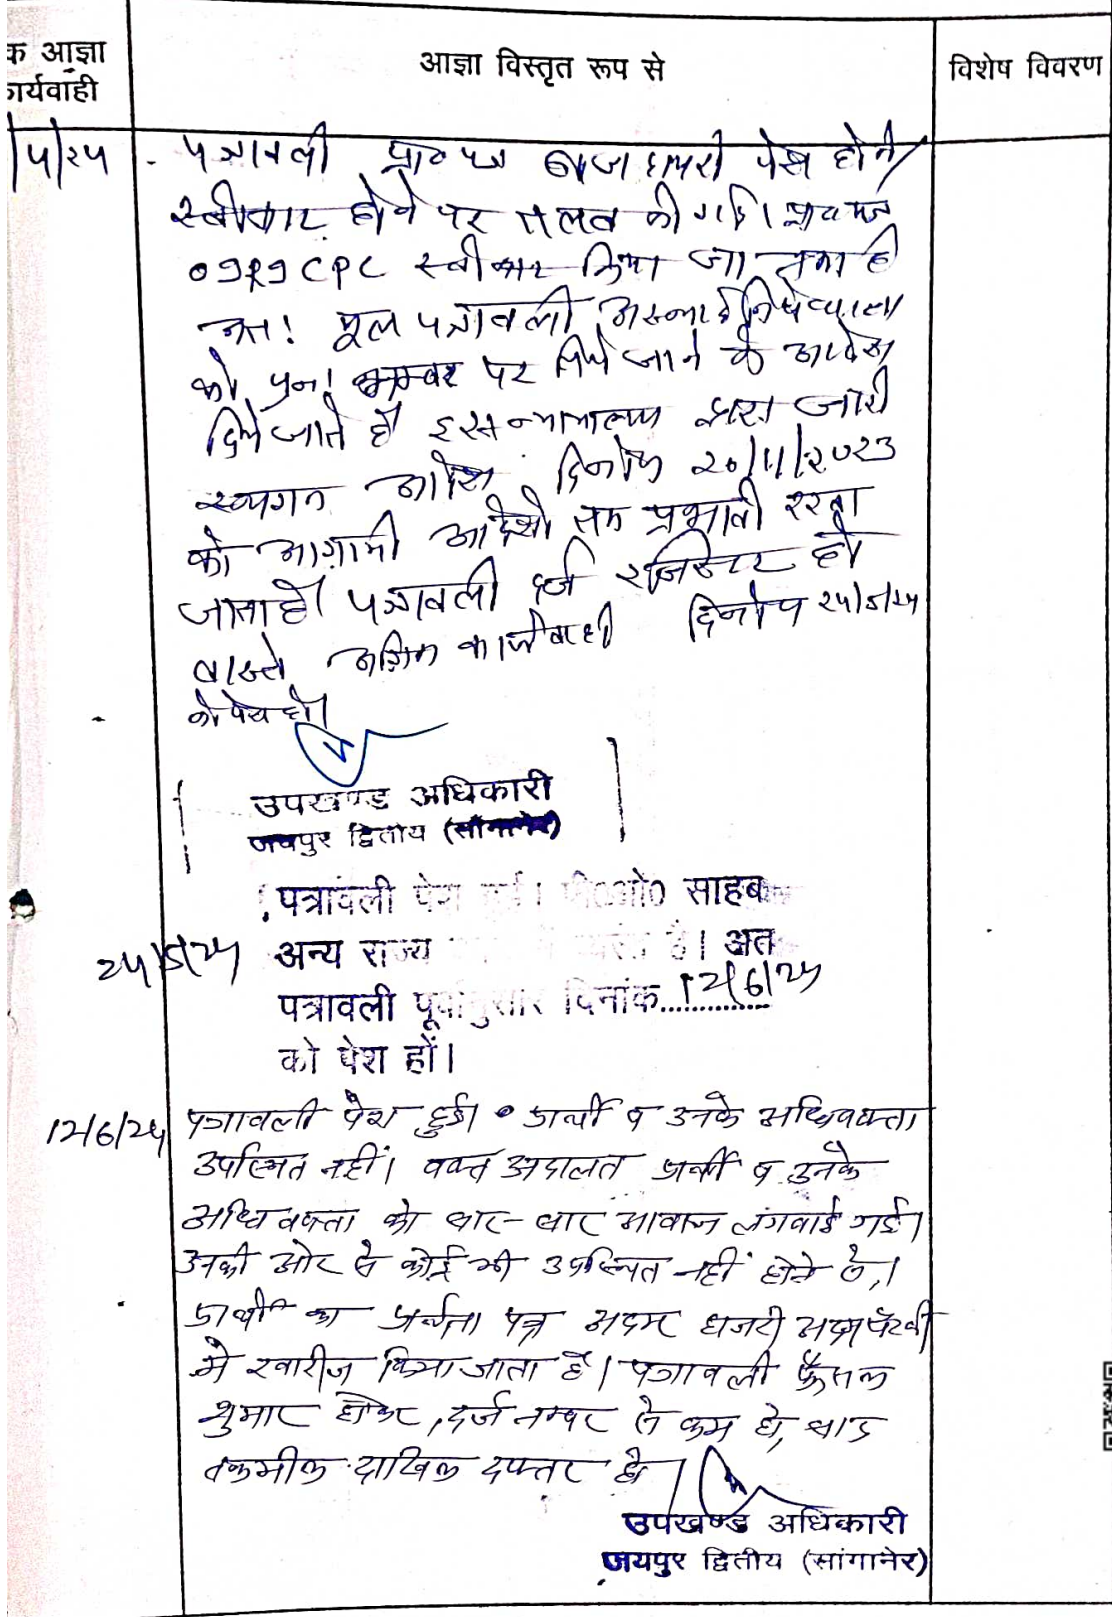 क आज्ञा
र्यवाही
आज्ञा विस्तृत रूप से
विशेष विवरण
पत्रावली पेश होने
स्वीकार होने पर तलब की गई।
09R9 CPC स्वीकार किया जा चुका है
अतः मूल पत्रावली अस्थाई निषेधाज्ञा
को पुनः नम्बर पर लिये जाने के आदेश
दिये जाते है इस न्यायालय द्वारा जारी
स्थगन आदेश दिनांक 20/11/2023
को आगामी आदेशो तक प्रभावी रखा
जाता है। पत्रावली दर्ज रजिस्टर हो
वास्ते अग्रिम कार्यवाही दिनांक 24/5/24
को पेश हो।
उपखण्ड अधिकारी
जयपुर द्वितीय (सांगानेर)
पत्रावली पेश हुई। पी0ओ0 साहब
24/5/24 अन्य राज्य है। अत
पत्रावली पूर्वानुसार दिनांक 12/6/24
को पेश हों।
12/6/24 पत्रावली पेश हुई। प्रार्थी व उनके अधिवक्ता
उपस्थित नहीं। वक्त अदालत प्रार्थी व उनके
अधिवक्ता को बार-बार आवाज लगवाई गई।
उनकी ओर से कोई भी उपस्थित नहीं होने से,।
प्रार्थी का प्रार्थना पत्र अदम हाजरी अदम पैरवी
मे खारीज किया जाता है। पत्रावली फैसल
शुमार होकर, दर्ज नम्बर से कम हो, बाद
तकमील दाखिल दफ्तर हो।
उपखण्ड अधिकारी
जयपुर द्वितीय (सांगानेर)